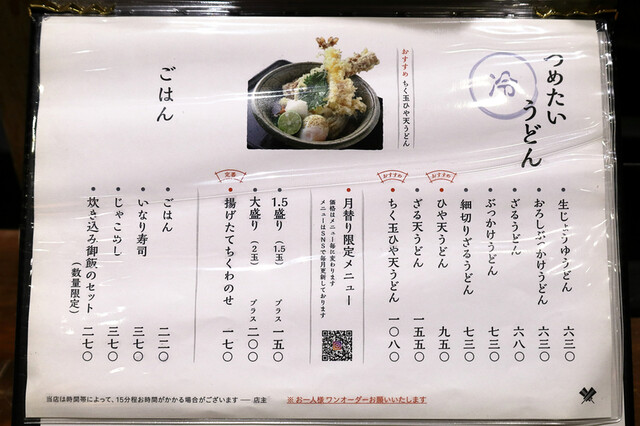 つめたい
うどん
冷
おすすめ ちく玉ひや天うどん
生じょうゆうどん 六三〇
おろしぶっかけうどん 六三〇
ざるうどん 六八〇
ぶっかけうどん 七三〇
細切りざるうどん 七三〇
おすすめ
ひや天うどん 九五〇
ざる天うどん 一五五〇
おすすめ
ちく玉ひや天うどん 一〇八〇
月替り限定メニュー
価格はメニュー毎に変わります
メニューはSNSで毎月更新しております
1.5盛り(1.5玉) プラス 一五〇
大盛り(2玉) プラス 二〇〇
定番
揚げたてちくわのせ 一七〇
ごはん
ごはん 二二〇
いなり寿司 三七〇
じゃこめし 三七〇
炊き込み御飯のセット(数量限定) 二七〇
当店は時間帯によって、15分程お時間がかかる場合がございます ― 店主
※お一人様 ワンオーダーお願いいたします